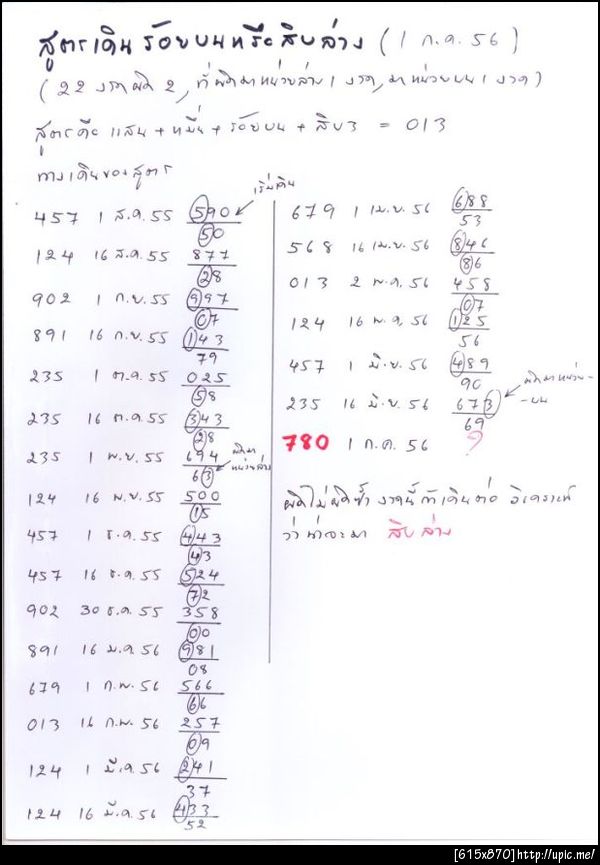 สูตรเดินร้อยบนหรือสิบล่าง (1 ก.ค. 56)
(22 งวดผิด 2, ที่ผิดมาหน่วยล่าง 1 งวด, มาหน่วยบน 1 งวด)
สูตรคือ แสน + หมื่น + ร้อยบน + สิบ3 = 013
ทางเดินของสูตร
เริ่มเดิน
457 1 ส.ค. 55 590
50
124 16 ส.ค. 55 877
28
902 1 ก.ย. 55 997
07
891 16 ก.ย. 55 143
79
235 1 ต.ค. 55 025
58
235 16 ต.ค. 55 343
28
235 1 พ.ย. 55 694
63
ผิดมา
หน่วยล่าง
124 16 พ.ย. 55 500
15
457 1 ธ.ค. 55 443
43
457 16 ธ.ค. 55 524
72
902 30 ธ.ค. 55 358
00
891 16 ม.ค. 56 981
08
679 1 ก.พ. 56 566
66
013 16 ก.พ. 56 257
09
124 1 มี.ค. 56 241
37
124 16 มี.ค. 56 433
52
679 1 เม.ย. 56 688
53
568 16 เม.ย. 56 846
86
013 2 พ.ค. 56 458
07
124 16 พ.ค. 56 125
56
457 1 มิ.ย. 56 489
90
235 16 มิ.ย. 56 673
69
ผิดมาหน่วย-
-บน
780 1 ก.ค. 56 ?
ผิดไม่ผิดซ้ำ งวดนี้ถ้าเดินต่อ วิเคราะห์
ว่าน่าจะมา สิบล่าง
[615x870]http://upic.me/